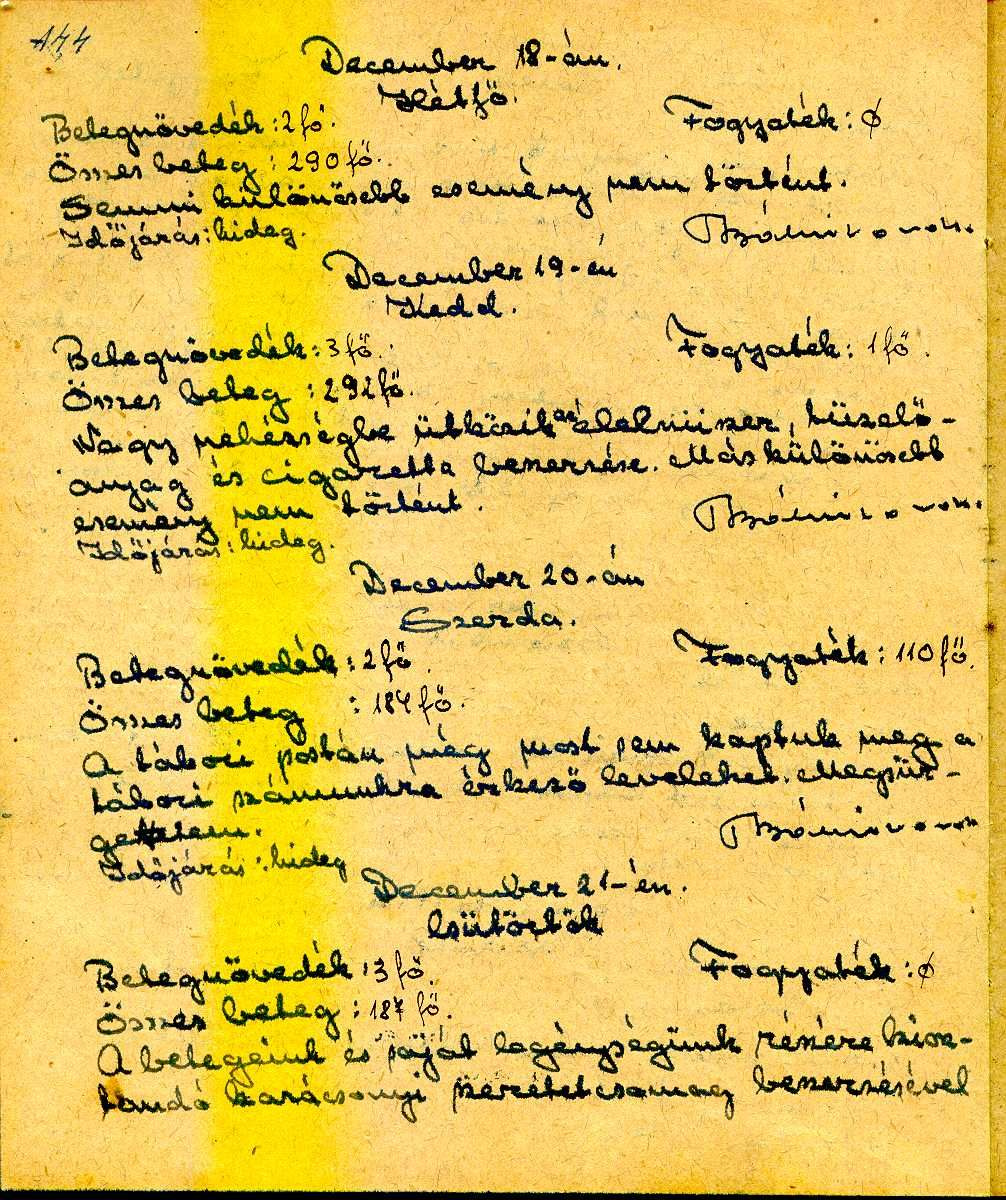 144
December 18-án.
Hétfő.
Betegnövedék: 2 fő. Fogyaték: ø
Összes beteg: 290 fő.
Semmi különösebb esemény nem történt.
Időjárás: hideg.
December 19-én
Kedd.
Betegnövedék: 3 fő. Fogyaték: 1 fő.
Összes beteg: 292 fő.
Nagy nehézségbe ütközik az élelmiszer, tüzelő-
anyag és cigaretta beszerzése. Más különösebb
esemény nem történt.
Időjárás: hideg.
December 20-án
Szerda.
Betegnövedék: 2 fő. Fogyaték: 110 fő.
Összes beteg : 184 fő.
A tábori postán még most sem kaptuk meg a
tábori számunkra érkező leveleket. Megsür-
gettem.
Időjárás: hideg
December 21-én.
Csütörtök
Betegnövedék: 3 fő. Fogyaték: ø
Összes beteg: 187 fő.
A betegeink és saját legénységünk részére kiosz-
tandó karácsonyi szeretetcsomag beszerzésével